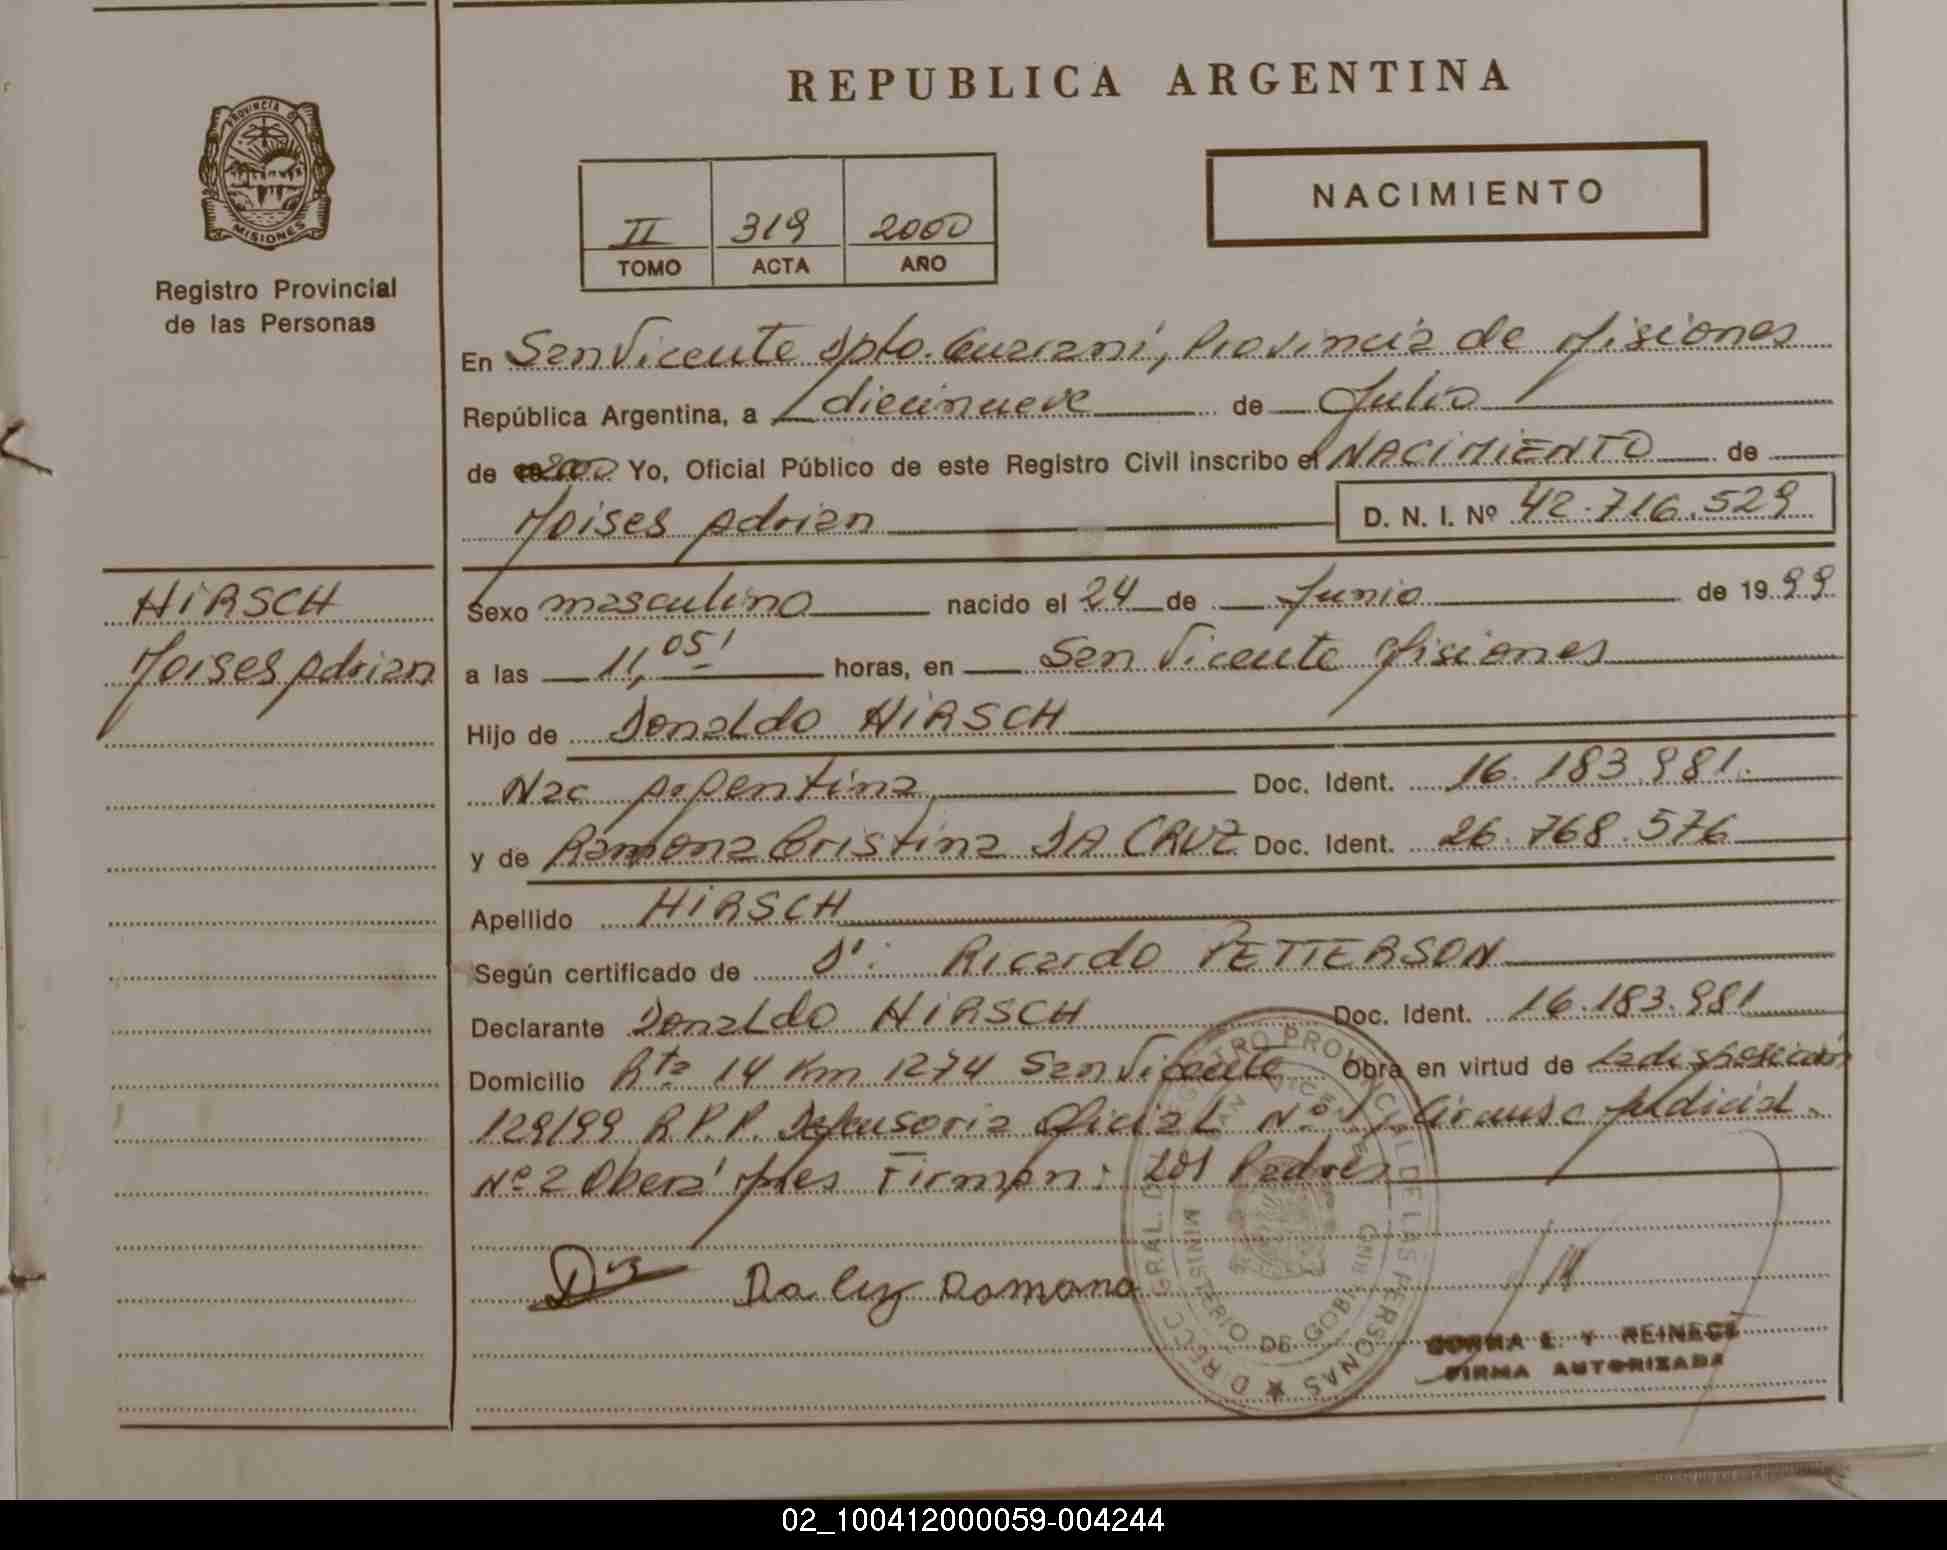 REPUBLICA ARGENTINA
PROVINCIA DE
MISIONES
Registro Provincial
de las Personas
NACIMIENTO
II 319 2000
TOMO ACTA AÑO
En San Vicente Dpto. Guarani, Provincia de Misiones
República Argentina, a diecinueve de Julio
de 2000 Yo, Oficial Público de este Registro Civil inscribo el NACIMIENTO de
Moises Adrian D. N. I. Nº 42.716.529
HIRSCH
Moises Adrian
Sexo masculino nacido el 24 de Junio de 1999
a las 11,05' horas, en San Vicente Misiones
Hijo de Donaldo HIRSCH
Nac Argentina Doc. Ident. 16.183.981.
y de Ramona Cristina DA CRUZ Doc. Ident. 26.768.576
Apellido HIRSCH
Según certificado de Dr: Ricardo PETTERSON
Declarante Donaldo HIRSCH Doc. Ident. 16.183.981
Domicilio Rta 14 Km 1274 San Vicente Obra en virtud de la disposicion
129/99 R.P.P. Defensoria Oficial Nº 1, Circunsc Judicial.
Nº 2 Oberá Mnes Firman: Los Padres
Da Cruz Ramona
DIRECC GRAL. DE REGISTRO PROVINCIAL DE LAS PERSONAS
SAN VICENTE
MINISTERIO DE GOBIERNO
REINECE
FIRMA AUTORIZADA
02_100412000059-004244